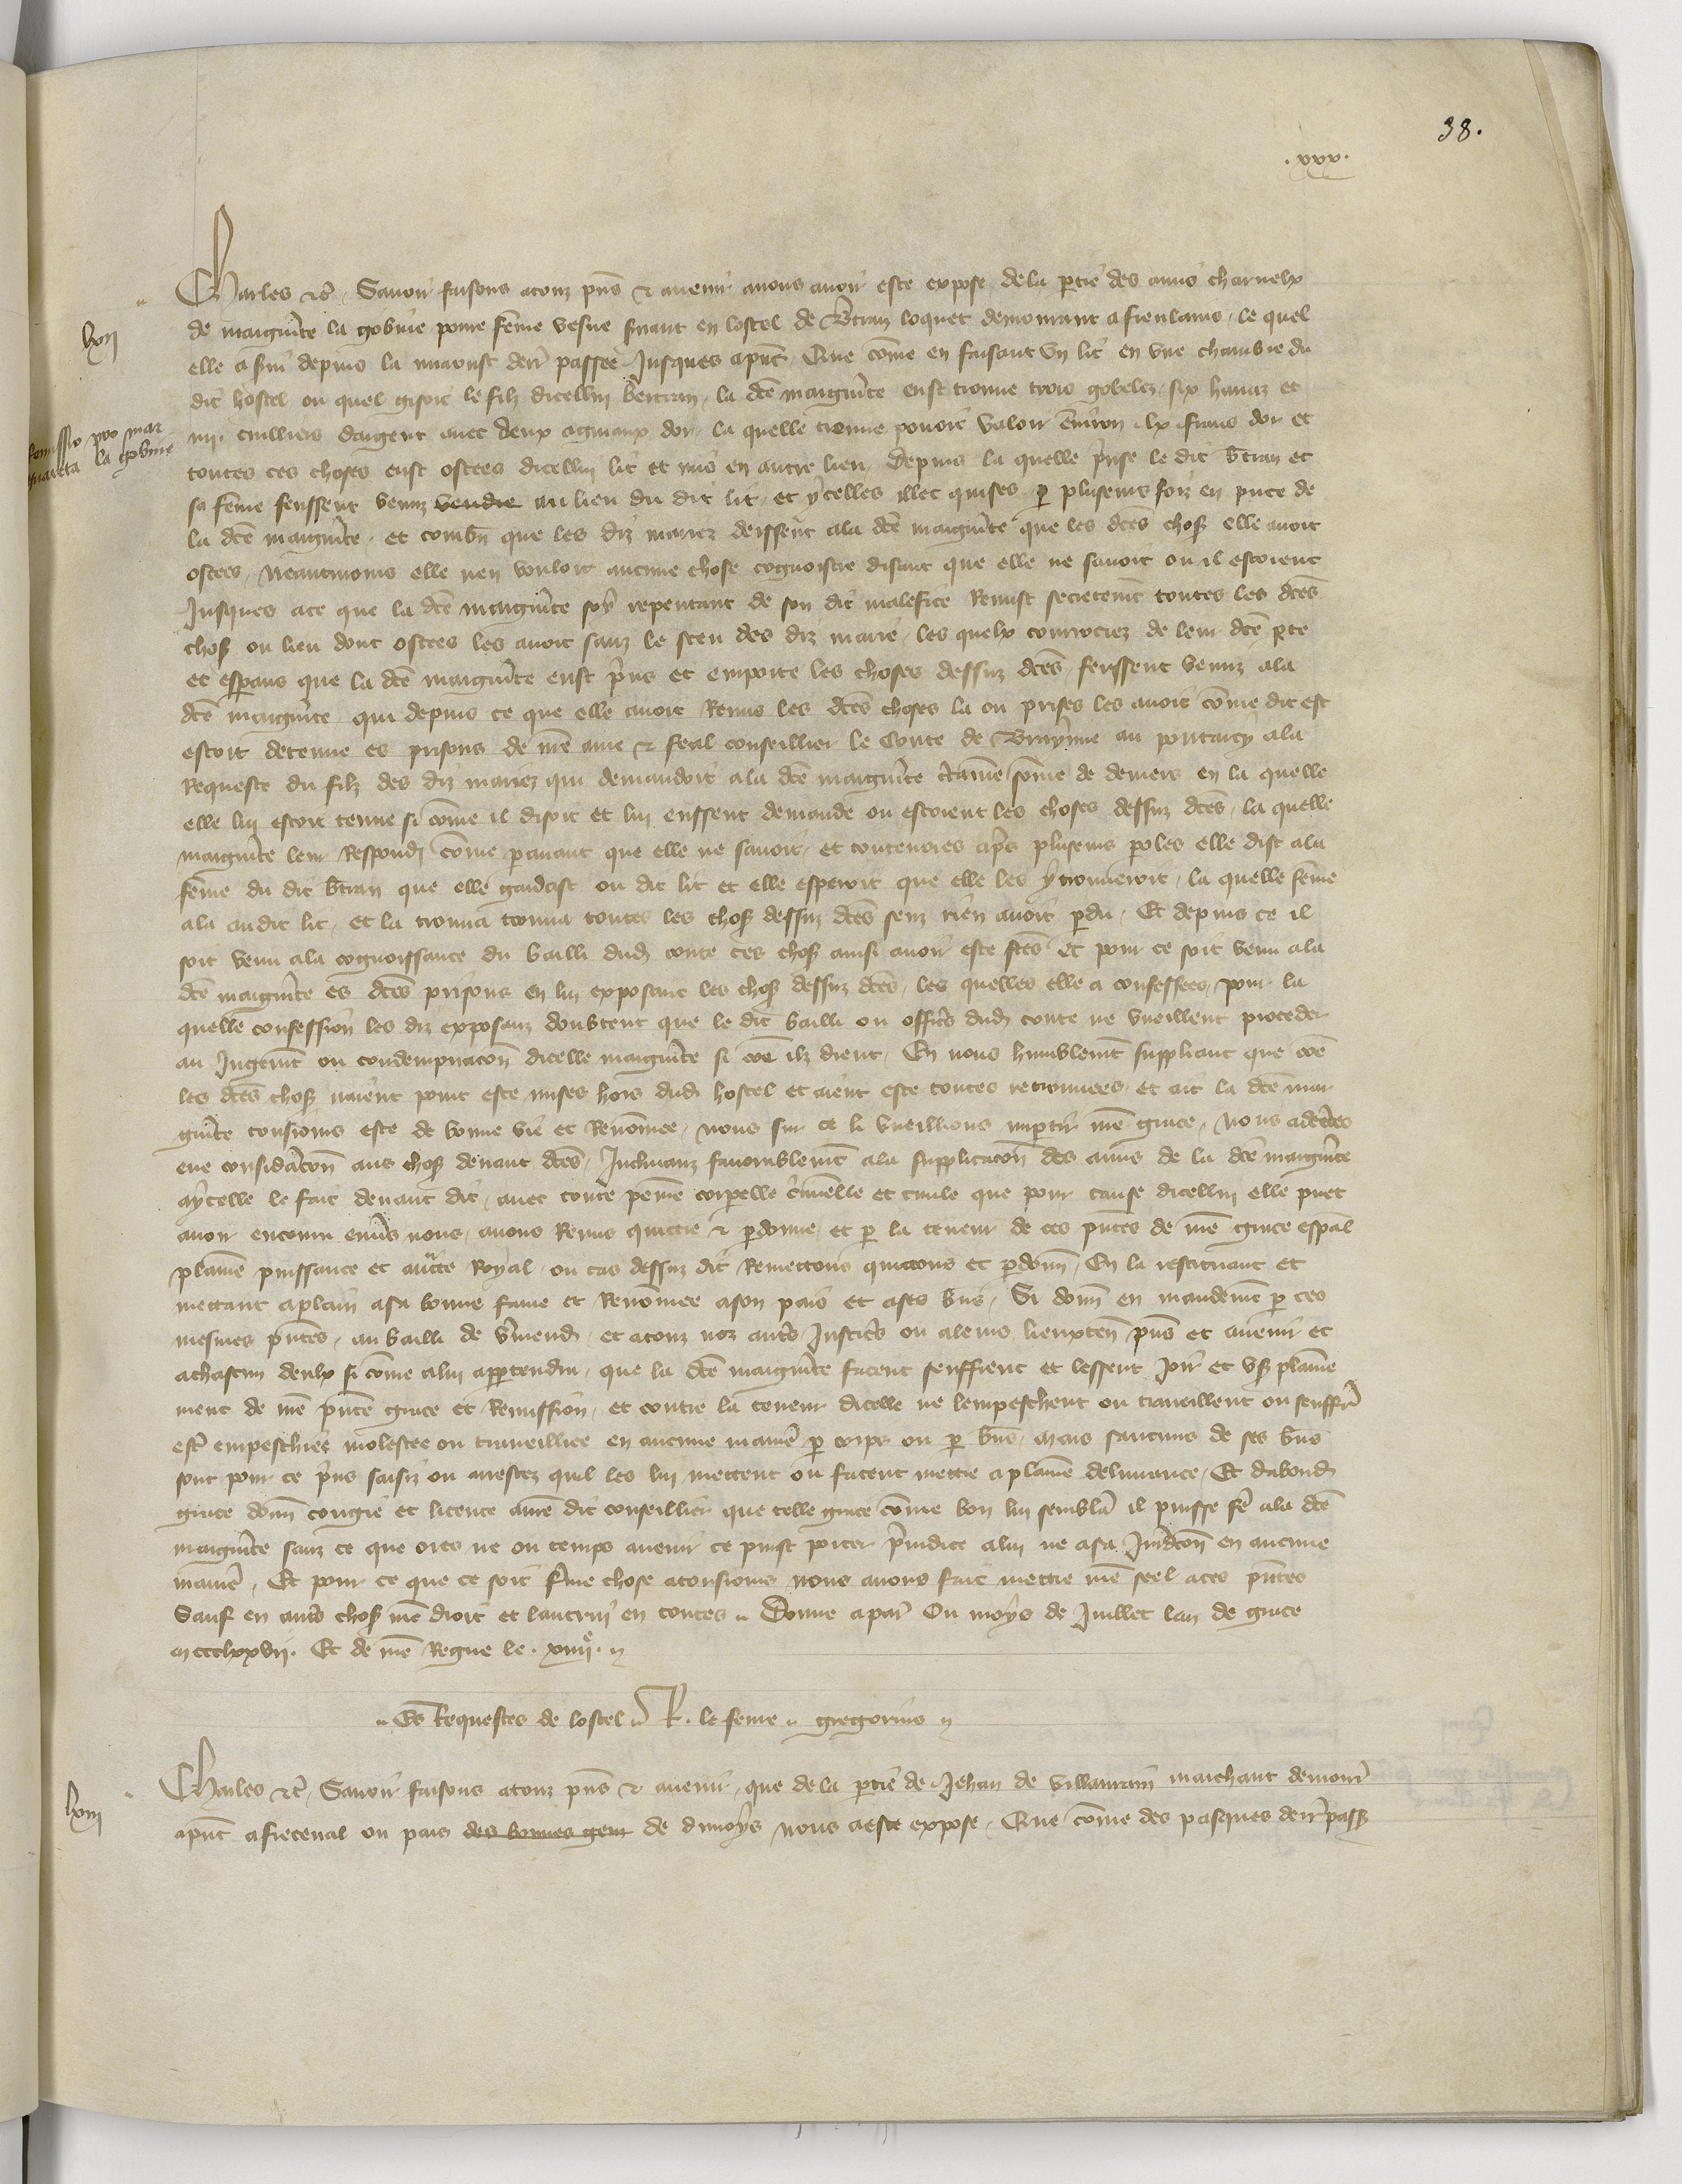 38.
.xxx.
Charles etc. Savoir faisons a touz pñs et avenir a nous avoir esté exposé de la ptie des amis charnelx
lxii
de marguite la gobine povre fẽme vesve servant en lostel de Btran loquet demourant a le quel
elle a s'vi depuis la miaoust derr passée Jusques a pñt. Que cõme en faisant un lit en une chambre du
dit hostel ou quel gisoit le filz dicellui Bertran, la dcẽ marguite eust trouve trois gobelez, six hanaz et
Remissio pro mar
iiii. cuilliers dargent avec deux agneaux dor, la quelle trouve povoit valoir environ .lx. frans dor et
guareta la gobine
toutes ces choses eust ostees dicellui lit et mis en autre lieu. Depuis la quelle pinse le dit btran et
sa fẽme feussent venuz vendre au lieu du dit lit, et ycelles illec quises p pluseurs foiz en pnce de
la dcẽ marguite, et combñ que les diz mariez deissent a la dcẽ marguite que les dcẽs chos elle avoit
ostees, Neantmoins elle nen vouloit aucune chose cognoistre disant que elle ne savoit ou il estoient
Jusques a ce que la dcẽ marguite soy repentant de son dit malefice Remist secretemt toutes les dcẽs
chos ou lieu dont ostees les avoit sanz le sceu des diz marie, les quelx courrociez de leur dcẽ pte
et espans que la dcẽ marguite eust pris et emporte les choses dessuz dcẽs, feussent venuz a la
dcẽ marguite qui depuis ce que elle avoit Remis les dcẽs choses la ou prises les avoit cõme dit est
estoit detenue es prisons de nrẽ ame et feal conseillier le Conte de Brayne au pontarcy a la
Requeste du filz des diz mariez qui demandoit a la dcẽ marguite ctaine sõme de deniers en la quelle
elle lui estoit tenue si cõme il disoit et lui eussent demande ou estoient les choses dessuz dcẽs, la quelle
marguite leur Respondi cõme pavant que elle ne savoit, et toutevoies apres pluseurs poles elle dist a la
fẽme du dit btran que elle gardast ou dit lit et elle esperoit que elle les y trouveroit, la quelle fẽme
ala au dit lit, et la trouva trouva toutes les chos dessuz dcẽs senz rien avoir pdu. Et depuis ce il
soit venu a la cognoissance du bailli dud conte ces chos ainsi avoir este fcẽs et pour ce soit venu a la
dcẽ marguite es dcẽs prisons en lui exposant les chos dessuz dcẽs, les quelles elle a confessees, pour la
quelle confession les diz exposanz doubtent que le dit bailli ou offics dud conte ne vueillent proceder
au Jugemt ou condempnacõn dicelle marguite si cõe ilz dient, En nous humblemt suppliant que cõe
les dcẽs chos naient point este mises hors dud hostel et aient este toutes retrouvees et ait la dcẽ mar
guite tousjours este de bonne vie et Renõmee, nous sur ce li vueillions imptir nrẽ grace, Nous adctes
eue considacõn aus chos devant dcẽs, Inclinanz favorablemt a la supplicacõn des amis de la dcẽ marguite
a ycelle le fait devant dit, avec toute peine corpelle cminelle et civile que pour cause dicellui elle puet
avoir encouru envs nous, avons Remis quictie et pdonne et p la teneur de ces pntes de nrẽ grace espãl
plaine puissance et auctte Royal ou cas dessuz dit Remettons quictons et pdonñ. En la restituant et
mettant a plain a sa bonne fame et Renõmee a son pais et a ses bñs, Si donñ en mandemt p ces
mesmes pntes, au bailli de Vmend. et a touz noz auts Justics ou a leurs lieuxteñ pñs et avenir et
a chascun deulx si cõme a lui apptendra, que la dcẽ marguite facent seuffrent et lessent Joir et us plaine
ment de nrẽ pntẽ grace et Remission, et contre la teneur dicelle ne lempeschent ou traveillent ou seuffrẽ
estr empeschiee molestee ou traveilliee en aucune manie p corps ou p bñs, Mais saucuns de ses bñs
sont pour ce pris saisiz ou arrestez quil les lui mettent ou facent mettre a plaine delivrance, Et dabond
grace donñ congie et licence a nrẽ dit conseillier que telle grace cõme bon lui semblã il puisse fẽ a la dcẽ
marguite sanz ce que ores ne ou temps avenir ce puist porter prejudice a lui ne a sa Juridcõn en aucune
manie. Et pour ce que ce soit fme chose a tousjours nous avons fait mettre nrẽ seel a ces pntes
Sauf en auts chos nrẽ droit et lautrui en toutes. Donne a paris Ou moys de Juillet lan de grace
mccclxxvii. Et de nrẽ Regne le .xiiiie.
Es Requestes de lostel. R. le fevre. gregorius
Charles etc. Savoir faisons a touz pñs et avenir, que de la ptie de Jehan de Villaurain marchant demour
lxiii
a pñt a frecenal ou pais des bonnes gens de dunoys nous a este expose, Que cõme des pasques derr pass